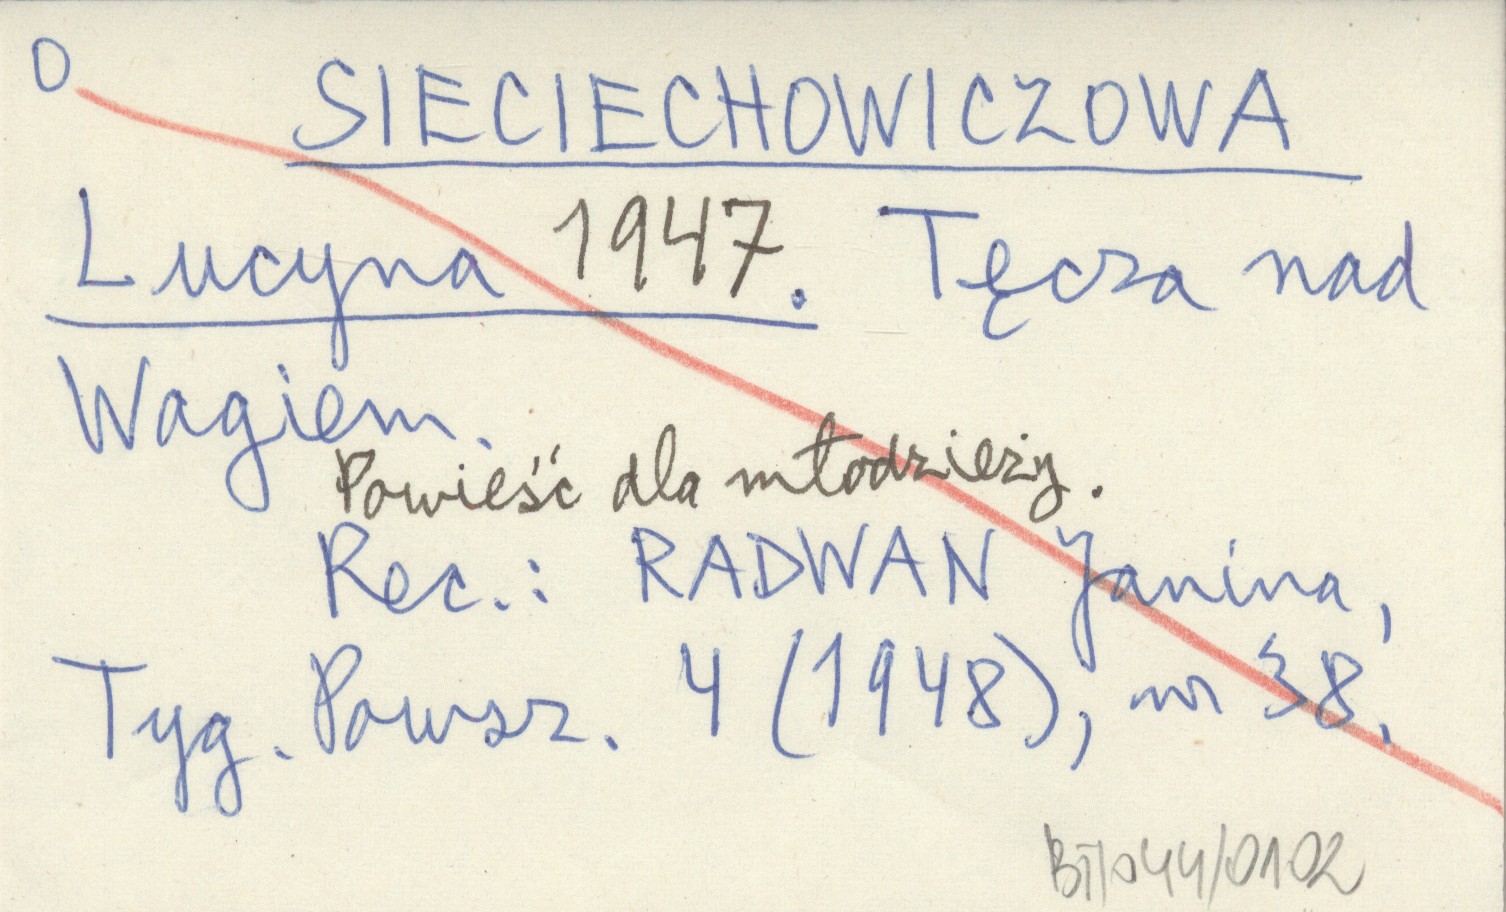 O SIECIECHOWICZOWA
Lucyna 1947. Tęcza nad
Wagiem.
Powieść dla młodzieży.
Rec.: RADWAN Janina,
Tyg. Powsz. 4 (1948), nr 38.